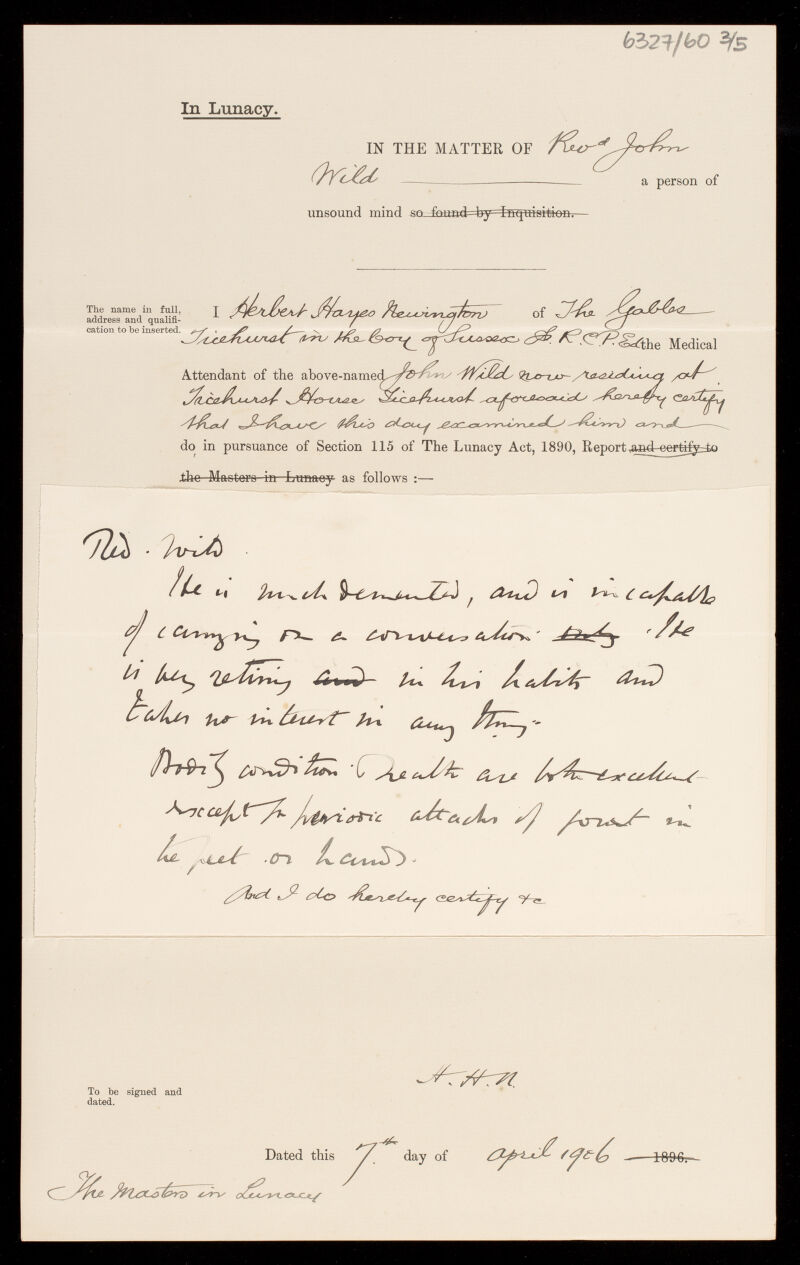 6327/60 3/5
In Lunacy.
IN THE MATTER OF Revd John
Wild a person of
unsound mind so found by Inquisition.
The name in full,
address and qualifi-
cation to be inserted.
I Herbert Hayes Newington of The Gables
Ticehurst in the Coy of Sussex F.R.C.P. Ed the Medical
Attendant of the above-named John Wild now residing at
Ticehurst House Ticehurst aforesaid hereby certify
that I have this day examined him and
do in pursuance of Section 115 of The Lunacy Act, 1890, Report and certify to
the Masters in Lunacy as follows :—
Wild.
He is much demented, and is incapable
of carrying on a conversation. He
is very retiring and in his habits and
takes no interest in any thing.
Bodily condition & health are both excellent
except for periodic attacks of gout in
the feet or hands.
And I do hereby certify &c
To be signed and
dated.
H. H. N.
Dated this 7th day of April 1906 1896.
The Masters in Lunacy